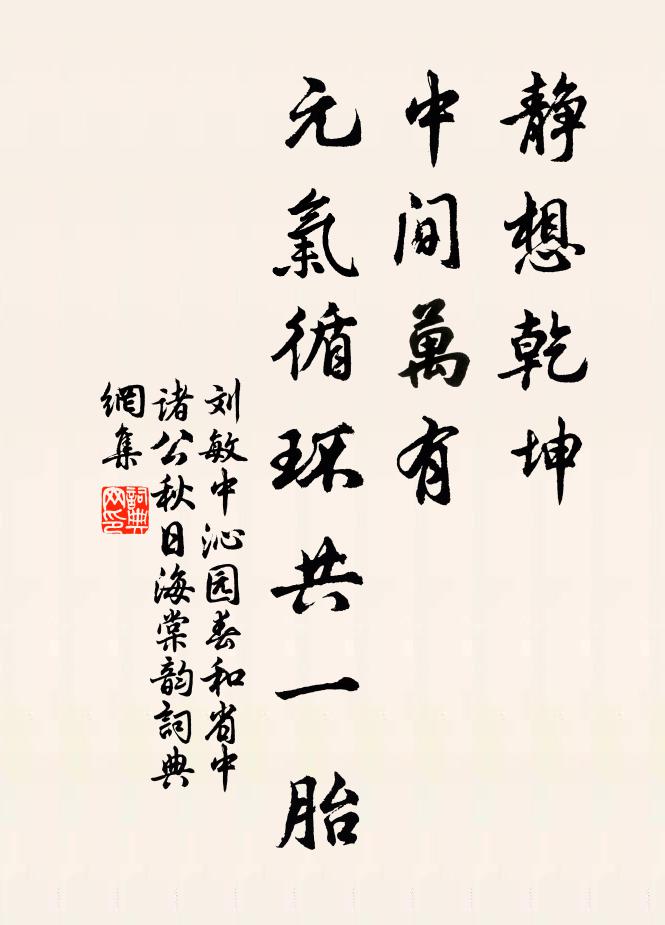 静想乾坤
中间萬有
元氣循环共一胎
刘敏中沁园春和省中
诸公秋日海棠韵詞典
網集
詞典
网印